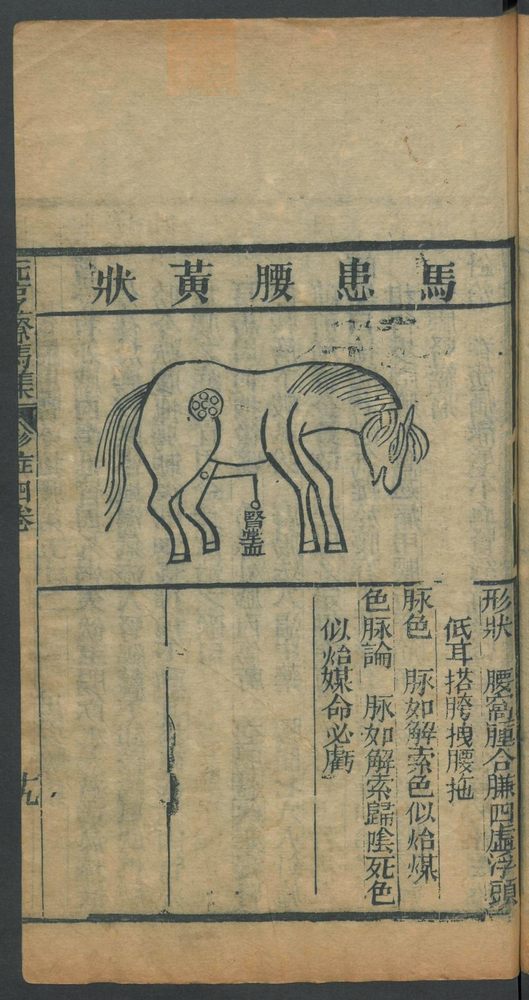 馬患腰黃狀
腎堂血
形狀　腰窩腫合臁四虛浮頭
低耳搭胯拽腰拖
脉色　脉如解索色似炲煤
色脉論　脉如解索歸陰死色
似炲煤命必虧
元亨療馬集　卷
九